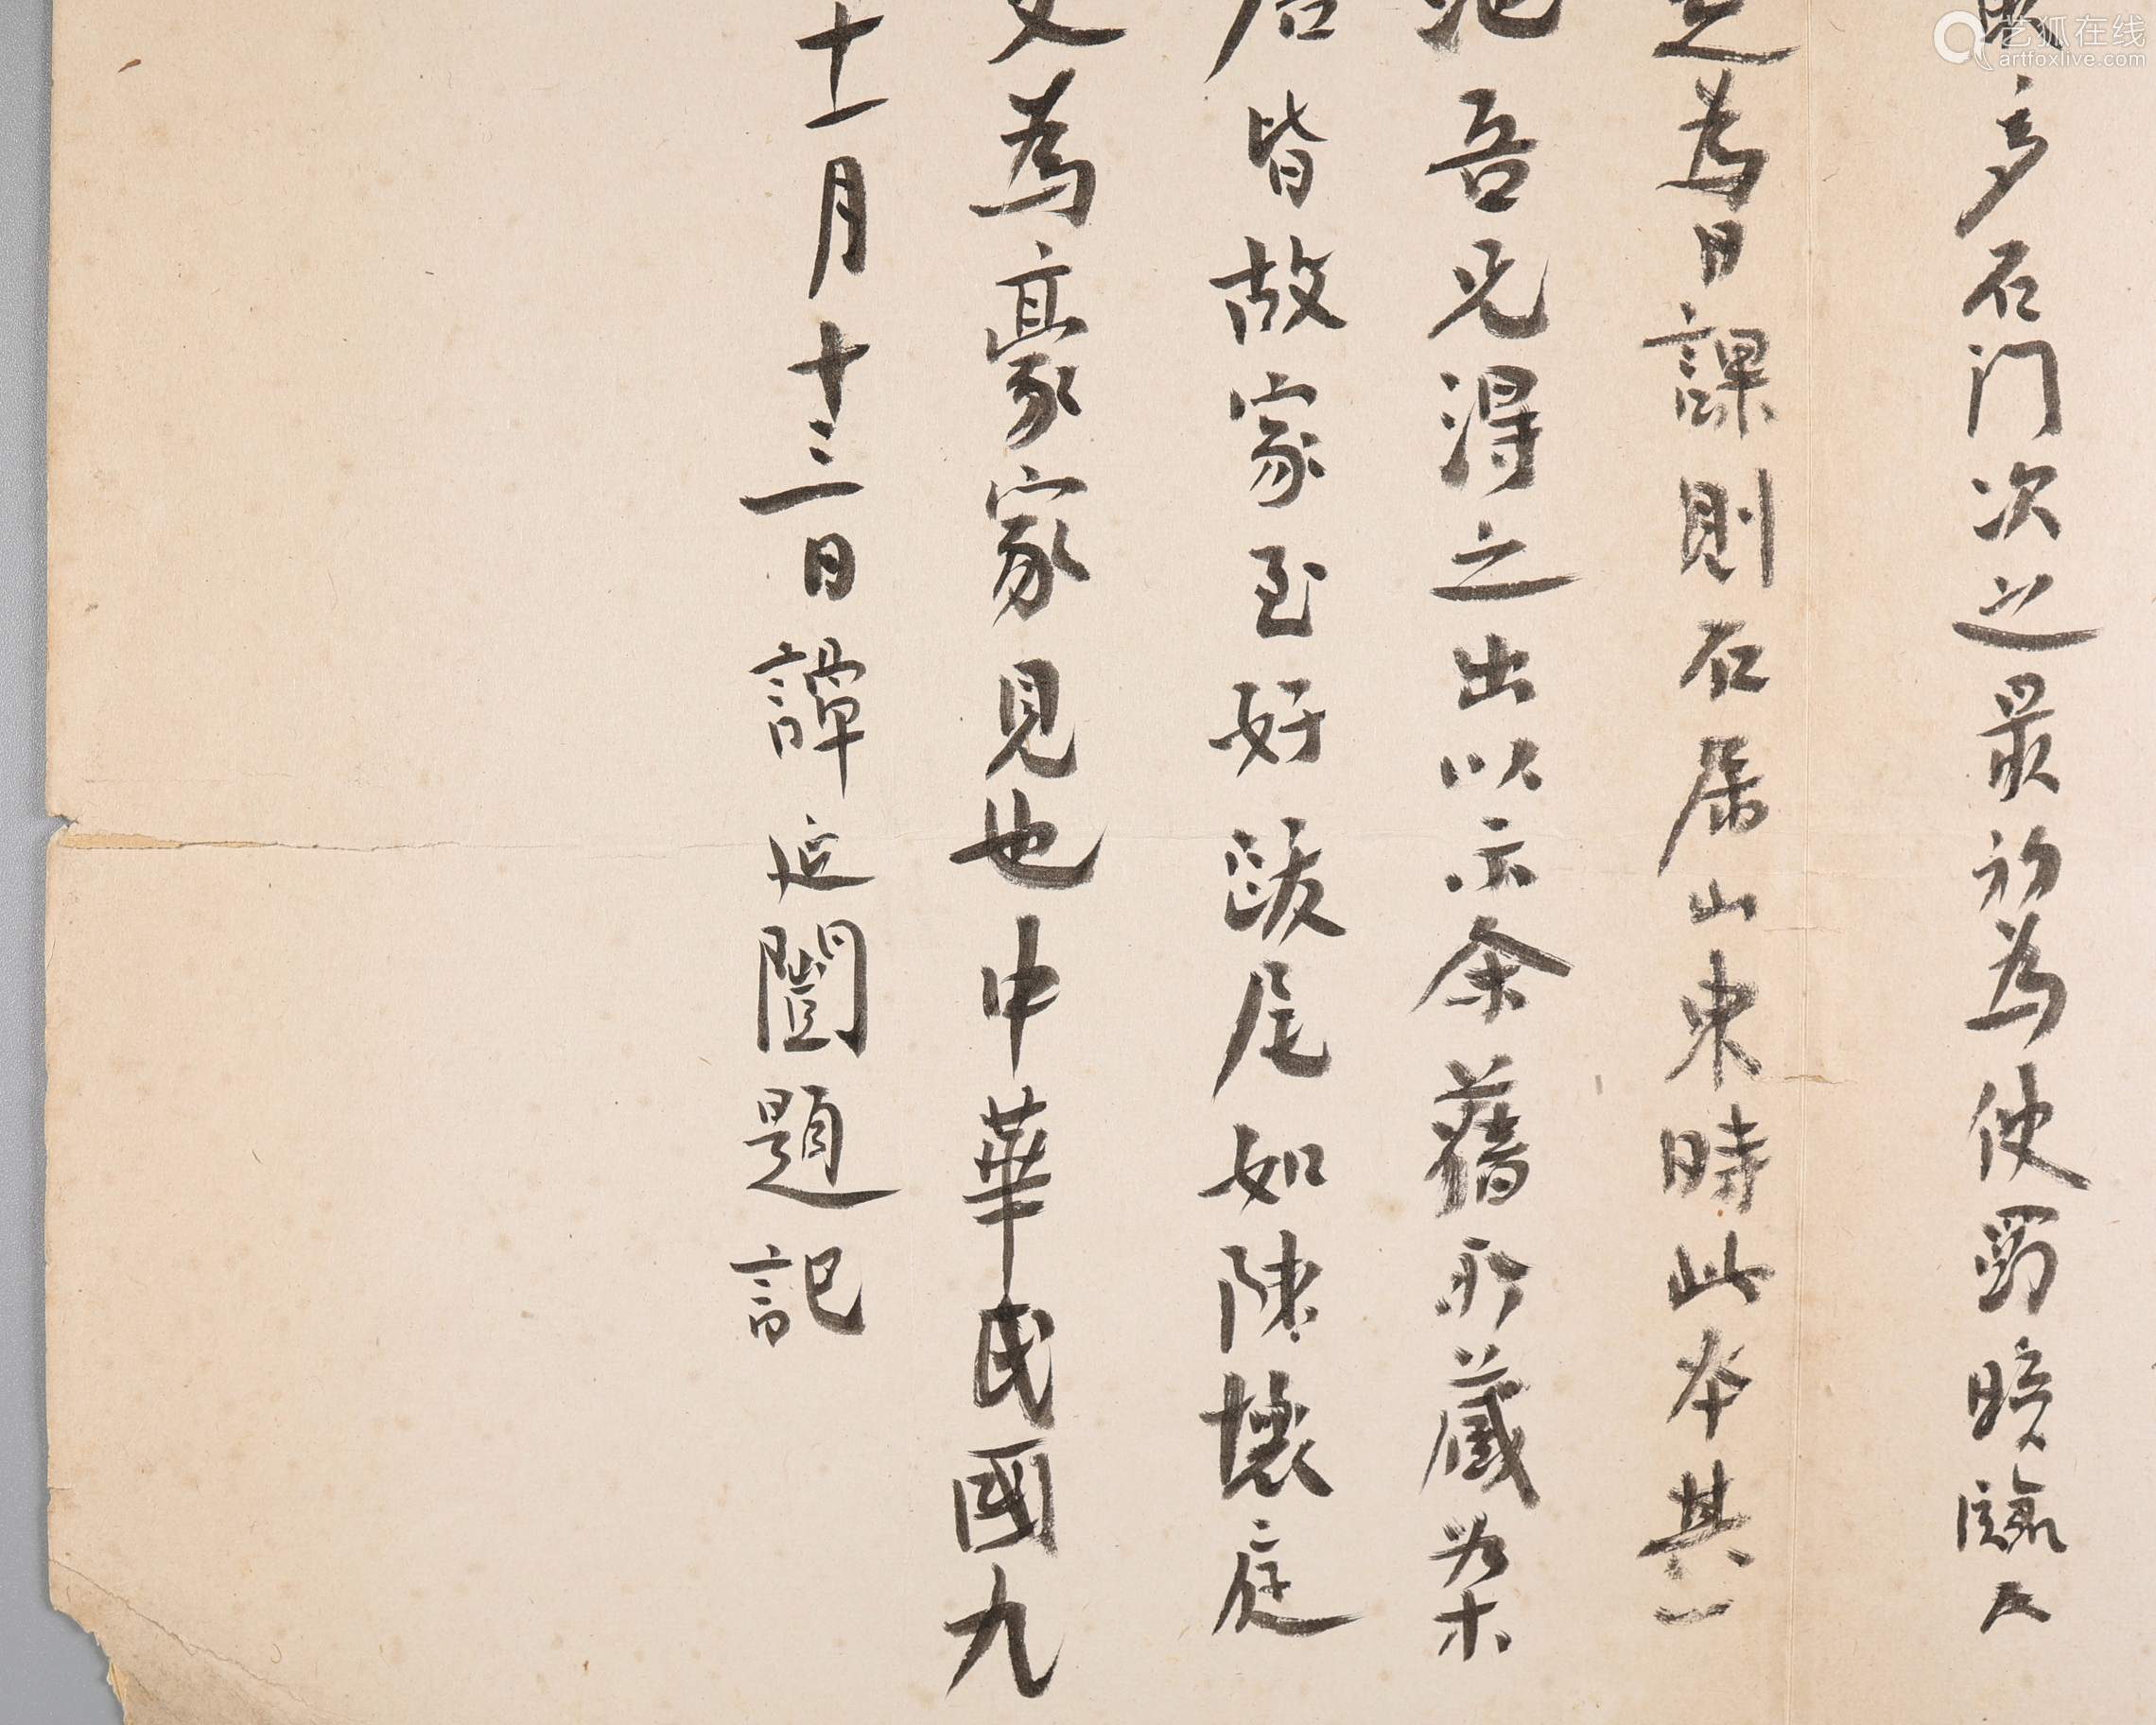 多石门次之最初为使蜀晚臨大
之為日課則石居山東時此本其一
吾兄得之出以示余舊所藏為柒
皆故家至好跋尾如陳懷庭
為豪家見也中華民國九
十一月十三日譚延闓題記
艺狐在线
artfoxlive.com